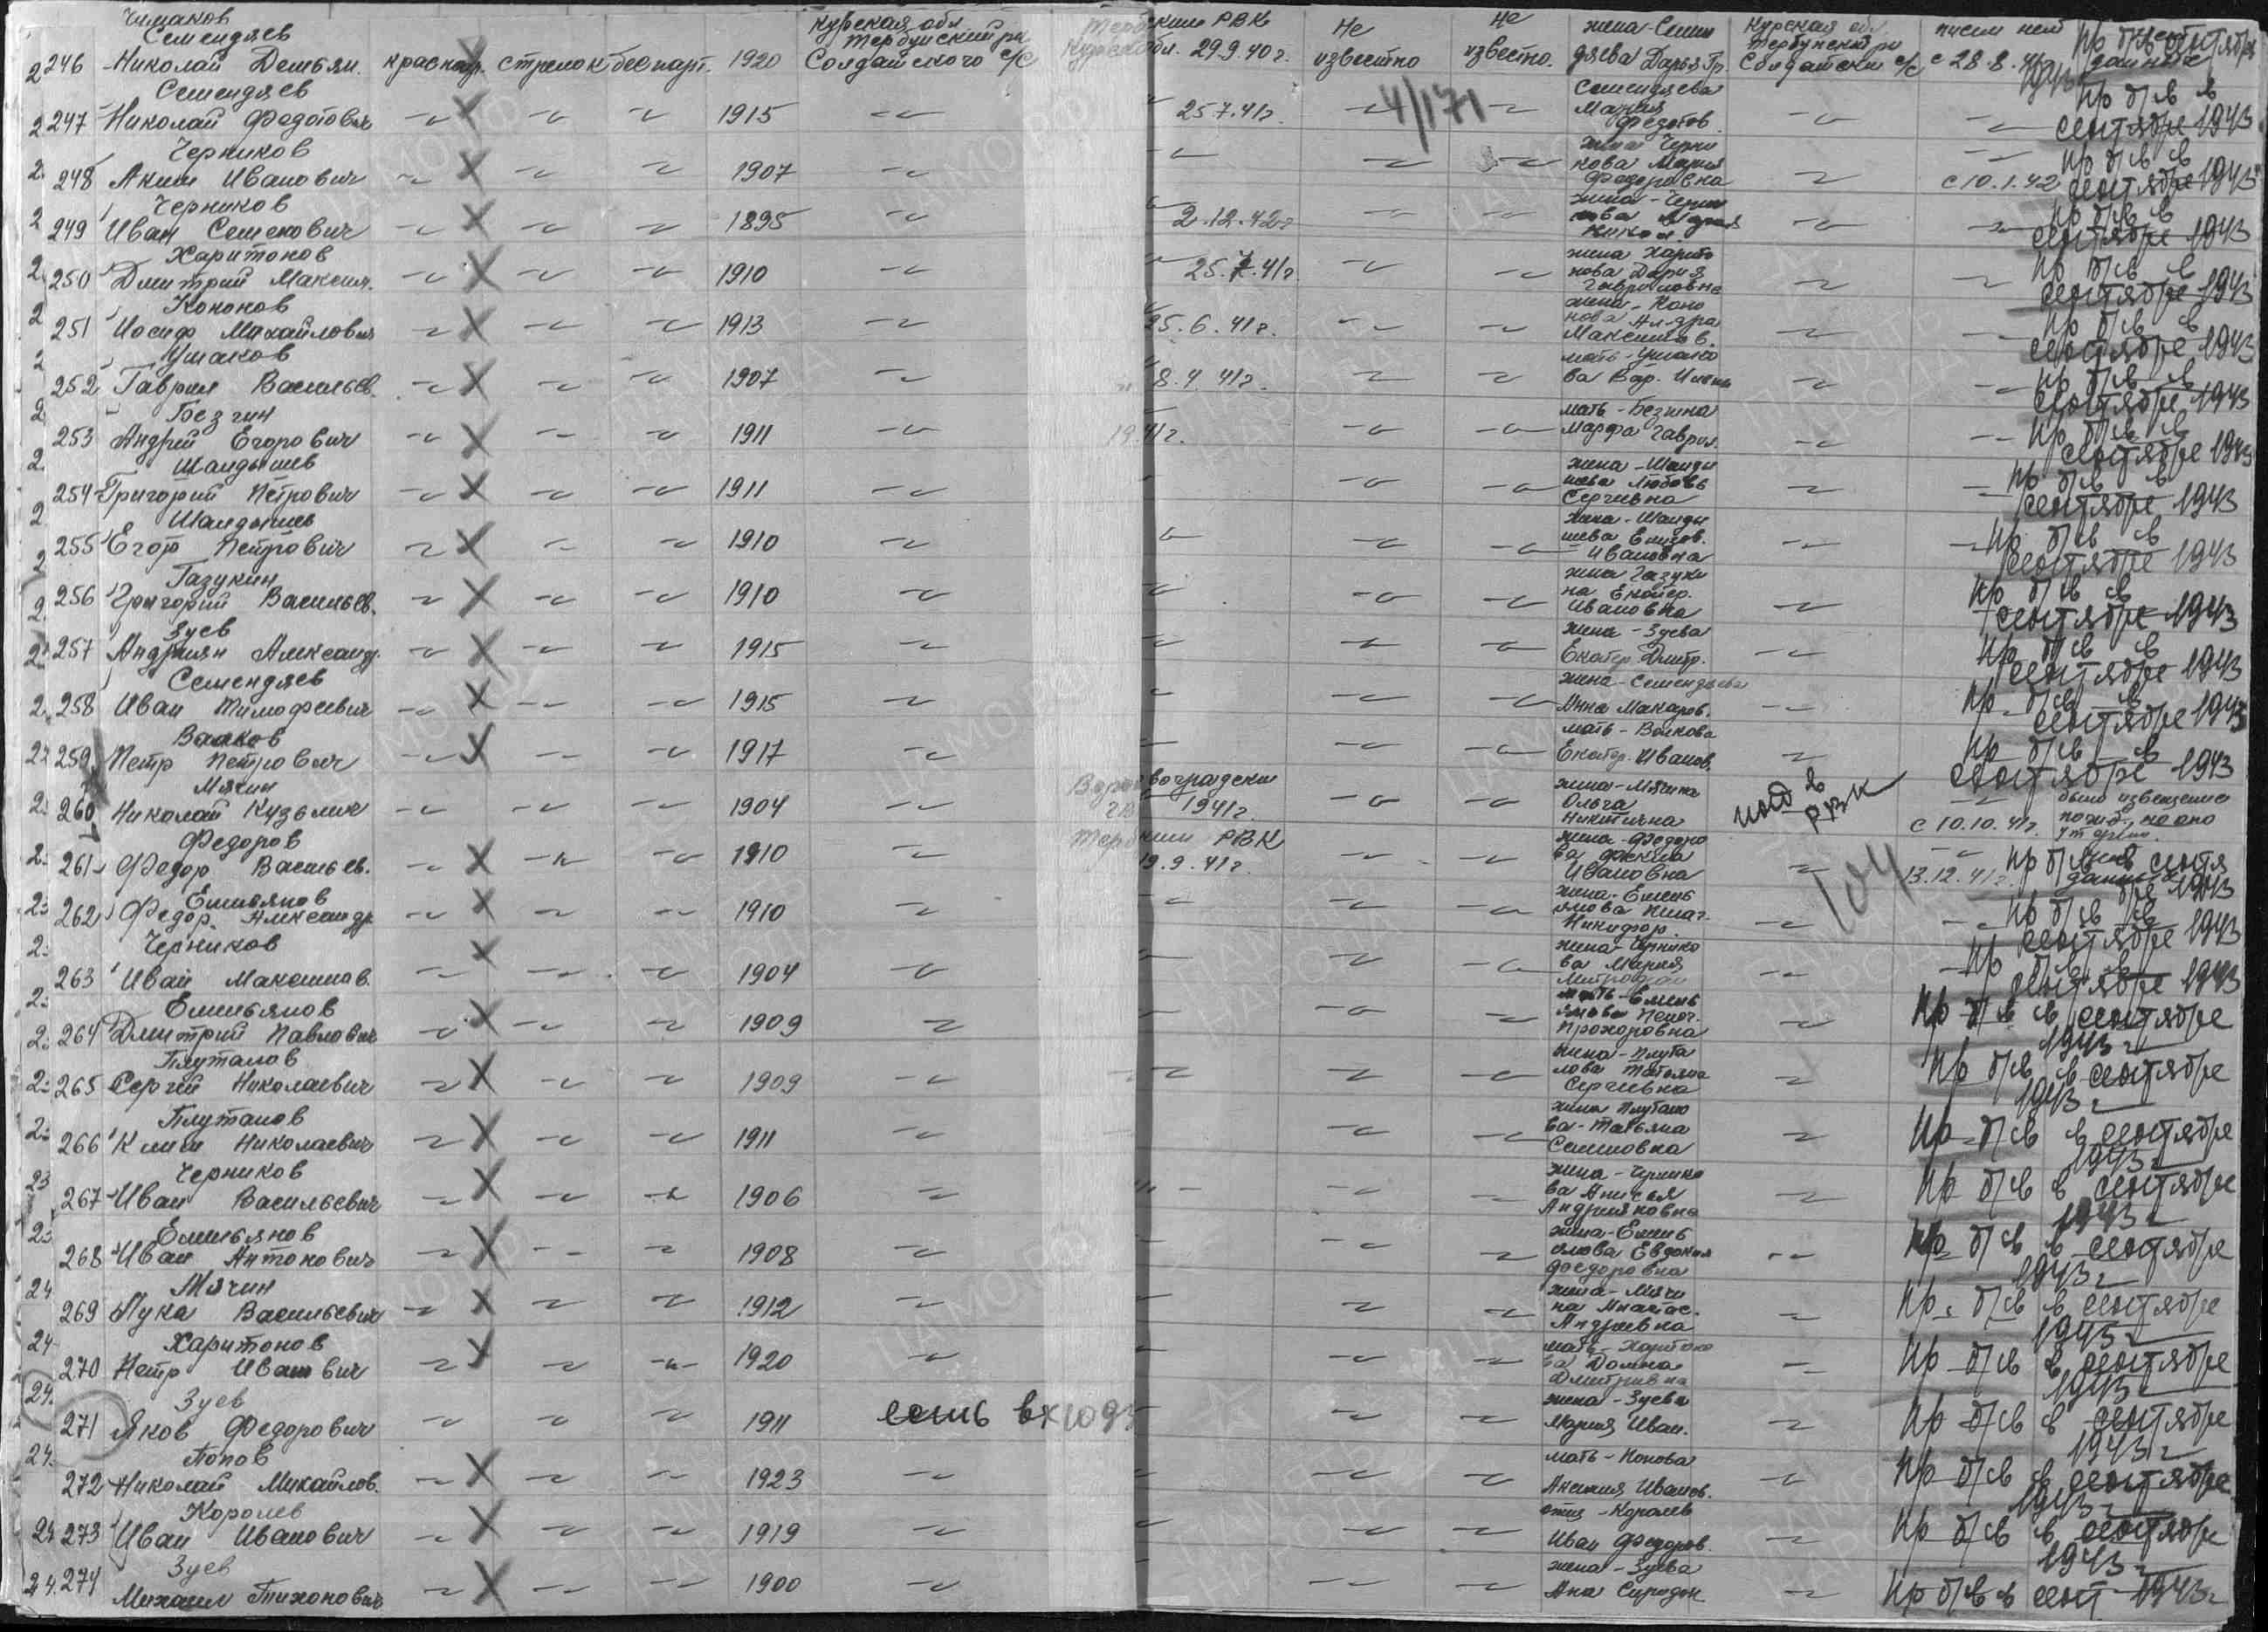 Семендяев
246 Николай Демьян. красноар. стрелок беспарт. 1920 Курская обл. Тербунский р-н Солдатского с/с Тербунским РВК Курской обл. 29.9.40 г. Не известно Не известно. жена-Семендяева Дарья Гр. Курская обл. Тербунский р-н Солдатский с/с писем нет с 28.8.41 пр б/в сентябре 1943
Семендяев
247 Николай Федотович 1915 25.7.41 г. 4/171 Семендяева Мария Федотов. пр б/в в сентябре 1943
Черников
248 Аким Иванович 1907 жена Черникова Мария Федоровна с 10.1.42 пр б/в в сентябре 1943
Черников
249 Иван Семенович 1895 2.12.42 г жена-Черникова Мария Никол. пр б/в в сентябре 1943
Харитонов
250 Дмитрий Максим. 1910 25.7.41 г жена Харитонова Дария Гавриловна пр б/в в сентябре 1943
Кононов
251 Иосиф Михайлович 1913 25.6.41 г. жена-Кононова Ал-дра Максимов. пр б/в в сентябре 1943
Ушаков
252 Гаврил Васильев. 1907 8.4.41 г. мать-Ушакова Вар. Ильин. пр б/в в сентябре 1943
Безгин
253 Андрей Егорович 1911 1941 г. мать-Безгина Марфа Гаврил. пр б/в в сентябре 1943
Шандышев
254 Григорий Петрович 1911 жена-Шандышева Любовь Сергеевна пр б/в в сентябре 1943
Шандышев
255 Егор Петрович 1910 жена-Шандышева Елизов. Ивановна пр б/в в сентябре 1943
Газукин
256 Григорий Васильев. 1910 жена Газукина Екатер. Ивановна пр б/в в сентябре 1943
Зуев
257 Андриян Александр. 1915 жена-Зуева Екатер. Дмитр. пр б/в в сентябре 1943
Семендяев
258 Иван Тимофеевич 1915 жена-Семендяева Анна Макаров. пр б/в в сентябре 1943
Волков
259 Петр Петрович 1917 мать-Волкова Екатер. Иванов. пр б/в в сентябре 1943
Мячин
260 Николай Кузьмич 1904 1941 г. жена-Мячина Ольга Никитична с 10.10.41 г. было извещение
Федоров
261 Федор Васильев. 1910 Тербунским РВК 19.9.41 г. жена-Федорова Ивановна 13.12.41 г. пр б/в в сентябре 1943
Емельянов
262 Федор Александр. 1910 жена-Емельянова Пелаг. Никифор. 104 пр б/в в сентябре 1943
Черников
263 Иван Максимов. 1904 жена-Черникова Мария Митрофан пр б/в в сентябре 1943
Емельянов
264 Дмитрий Павлович 1909 мать-Емельянова Пелаг. Прохоровна пр б/в в сентябре 1943 г
Плуталов
265 Сергей Николаевич 1909 жена-Плуталова Татьяна Сергеевна пр б/в в сентябре 1943 г
Плуталов
266 Клим Николаевич 1911 жена Плуталова-Татьяна Семеновна пр б/в в сентябре 1943 г
Черников
267 Иван Васильевич 1906 жена-Черникова Анисья Андрияновна пр б/в в сентябре 1943 г
Емельянов
268 Иван Антонович 1908 жена-Емельянова Евдокия Федоровна пр б/в в сентябре 1943 г
Мячин
269 Лука Васильевич 1912 жена-Мячина Анастас. Андреевна пр б/в в сентябре 1943 г
Харитонов
270 Петр Иванович 1920 мать-Харитонова Домна Дмитривна пр б/в в сентябре 1943 г
Зуев
271 Яков Федорович 1911 есть вход жена-Зуева Мария Иван. пр б/в в сентябре 1943 г
Попов
272 Николай Михайлов. 1923 мать-Попова Аксиния Иванов. пр б/в в сентябре 1943 г
Королев
273 Иван Иванович 1919 отец-Королев Иван Федоров. пр б/в в сентябре 1943 г
Зуев
274 Михаил Тихонович 1900 жена-Зуева Ана Спиридон пр б/в в сент 1943 г